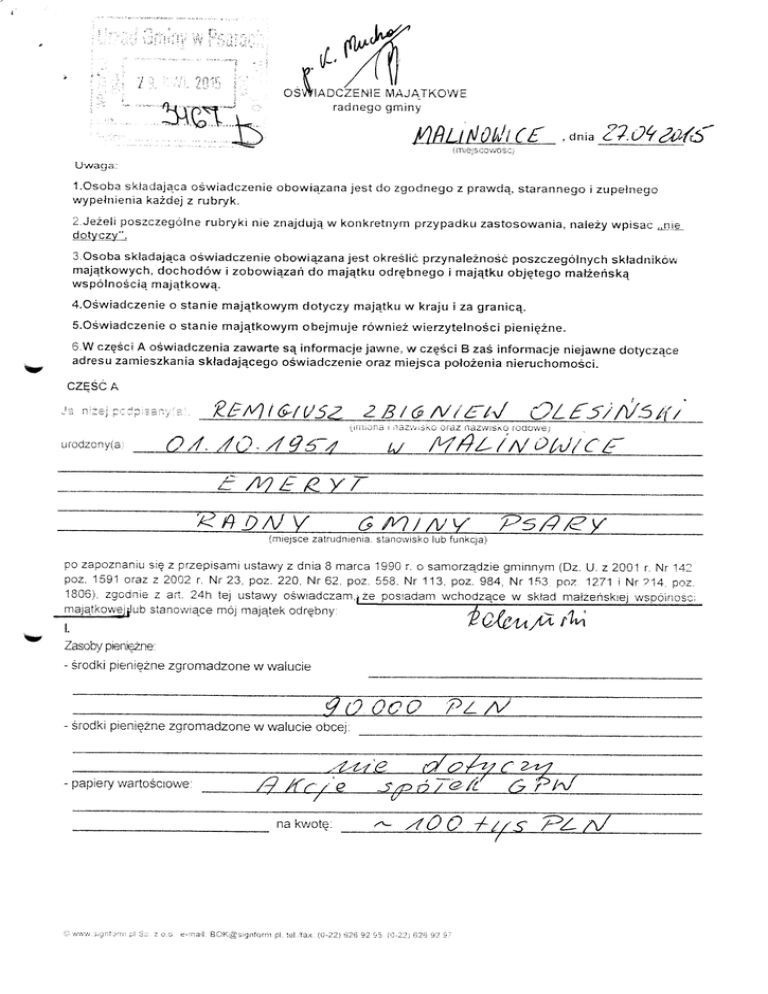 Urząd Gminy w Psarach
2015
3467
p. K. Mucha
OŚWIADCZENIE MAJĄTKOWE
radnego gminy
MALINOWICE , dnia 27.04.2015
(miejscowość)
Uwaga:
1.Osoba składająca oświadczenie obowiązana jest do zgodnego z prawdą, starannego i zupełnego
wypełnienia każdej z rubryk.
2.Jeżeli poszczególne rubryki nie znajdują w konkretnym przypadku zastosowania, należy wpisać „nie
dotyczy".
3.Osoba składająca oświadczenie obowiązana jest określić przynależność poszczególnych składników
majątkowych, dochodów i zobowiązań do majątku odrębnego i majątku objętego małżeńską
wspólnością majątkową.
4.Oświadczenie o stanie majątkowym dotyczy majątku w kraju i za granicą.
5.Oświadczenie o stanie majątkowym obejmuje również wierzytelności pieniężne.
6.W części A oświadczenia zawarte są informacje jawne, w części B zaś informacje niejawne dotyczące
adresu zamieszkania składającego oświadczenie oraz miejsca położenia nieruchomości.
CZĘŚĆ A
Ja niżej podpisany(a), REMIGIUSZ ZBIGNIEW OLESIŃSKI
(imiona i nazwisko oraz nazwisko rodowe)
urodzony(a) 01.10.1951 w MALINOWICE
EMERYT
RADNY GMINY PSARY
(miejsce zatrudnienia, stanowisko lub funkcja)
po zapoznaniu się z przepisami ustawy z dnia 8 marca 1990 r. o samorządzie gminnym (Dz. U. z 2001 r. Nr 142
poz. 1591 oraz z 2002 r. Nr 23, poz. 220, Nr 62, poz. 558, Nr 113, poz. 984, Nr 153 poz. 1271 i Nr 214, poz.
1806), zgodnie z art. 24h tej ustawy oświadczam, że posiadam wchodzące w skład małżeńskiej wspólności
majątkowej lub stanowiące mój majątek odrębny:
I.
Zasoby pieniężne:
- środki pieniężne zgromadzone w walucie
90 000 PLN
- środki pieniężne zgromadzone w walucie obcej:
nie dotyczy
- papiery wartościowe: Akcje spółek GPW
na kwotę: ~ 100 tys PLN
© www.signform.pl Sp. z o.o. e-mail: BOK@signform.pl, tel./fax. (0-22) 626 92 95, (0-22) 626 92 97